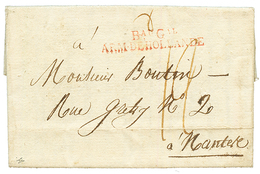 BAU GAL
ARM. DE HOLLANDE
à
Monsieur Boutin
Rue No 2
à Nantes